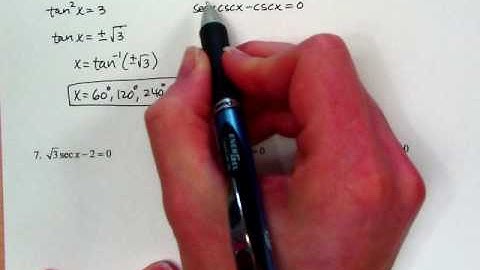 tan²x = 3
tan x = ±√3
x = tan⁻¹(±√3)
x = 60°, 120°, 240°
cscx - cscx = 0
7. √3 sec x - 2 = 0
= 0
ENERGEL